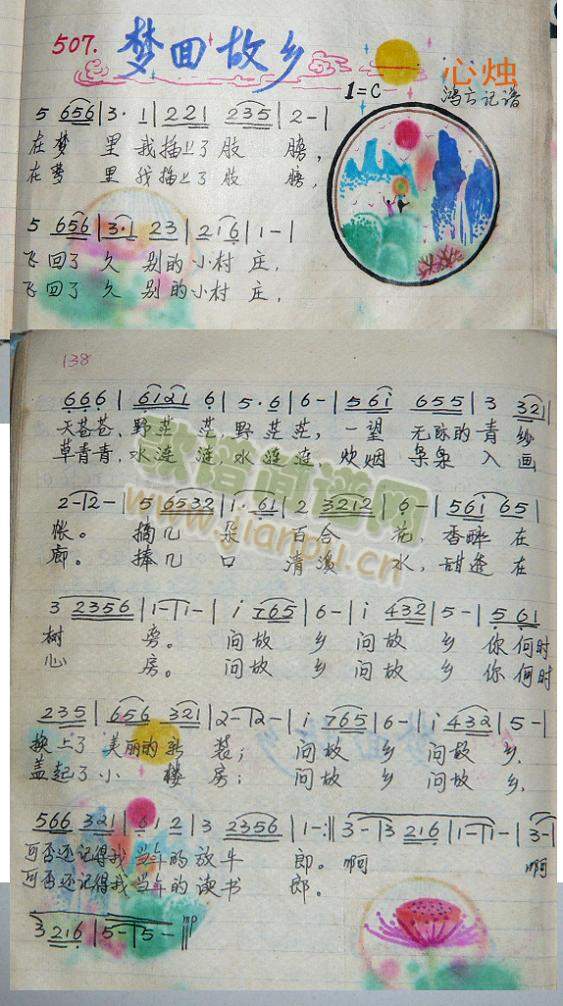 507. 梦回故乡
心烛
1=C
鸿云记谱
5 656 | 3· 1 | 2 21 235 | 2 - |
在梦 里 我插上了 肢 膀,
在梦 里 我插上了 肢 膀,
5 656 | 3·1 23 | 216 | 1 - |
飞回了 久 别的小村 庄,
飞回了 久 别的小村 庄,
138
666 | 6121 6 | 5·6 | 6 - | 561 655 | 3 321 |
天苍苍,野茫 茫,野茫 茫, 一望 无际的青 纱
草青青,水涟 涟,水涟 涟, 炊烟 袅袅 入 画
2 - | 2 - | 5 6532 | 1· 61 | 2 3212 | 6 - | 561 65 |
帐。 摘几 朵 百合 花, 香醉 在
廊。 捧几 口 清溪 水,甜透 在
3 2356 | 1 - | 1 - | i 765 | 6 - | i 432 | 5 - | 5 61
树 旁。 问故 乡 问故 乡 你何时
心 房。 问故 乡 问故 乡 你何时
235 | 656 321 | 2 - | 2 - | i 765 | 6 - | i 432 | 5 - |
换上了 美丽的新 装; 问故 乡 问故 乡,
盖起了小 楼 房; 问故 乡 问故 乡,
566 321 | 61 2 | 3 2356 | 1 - :‖ 3 - | 3 216 | 1 - | 1 - | 3 - |
可否还记得我当年的放牛 郎。 啊 啊
可否还记得我当年的读书 郎。
3 216 | 5 - | 5 - ‖
mp
歌谱简谱网
www.jianpu.cn